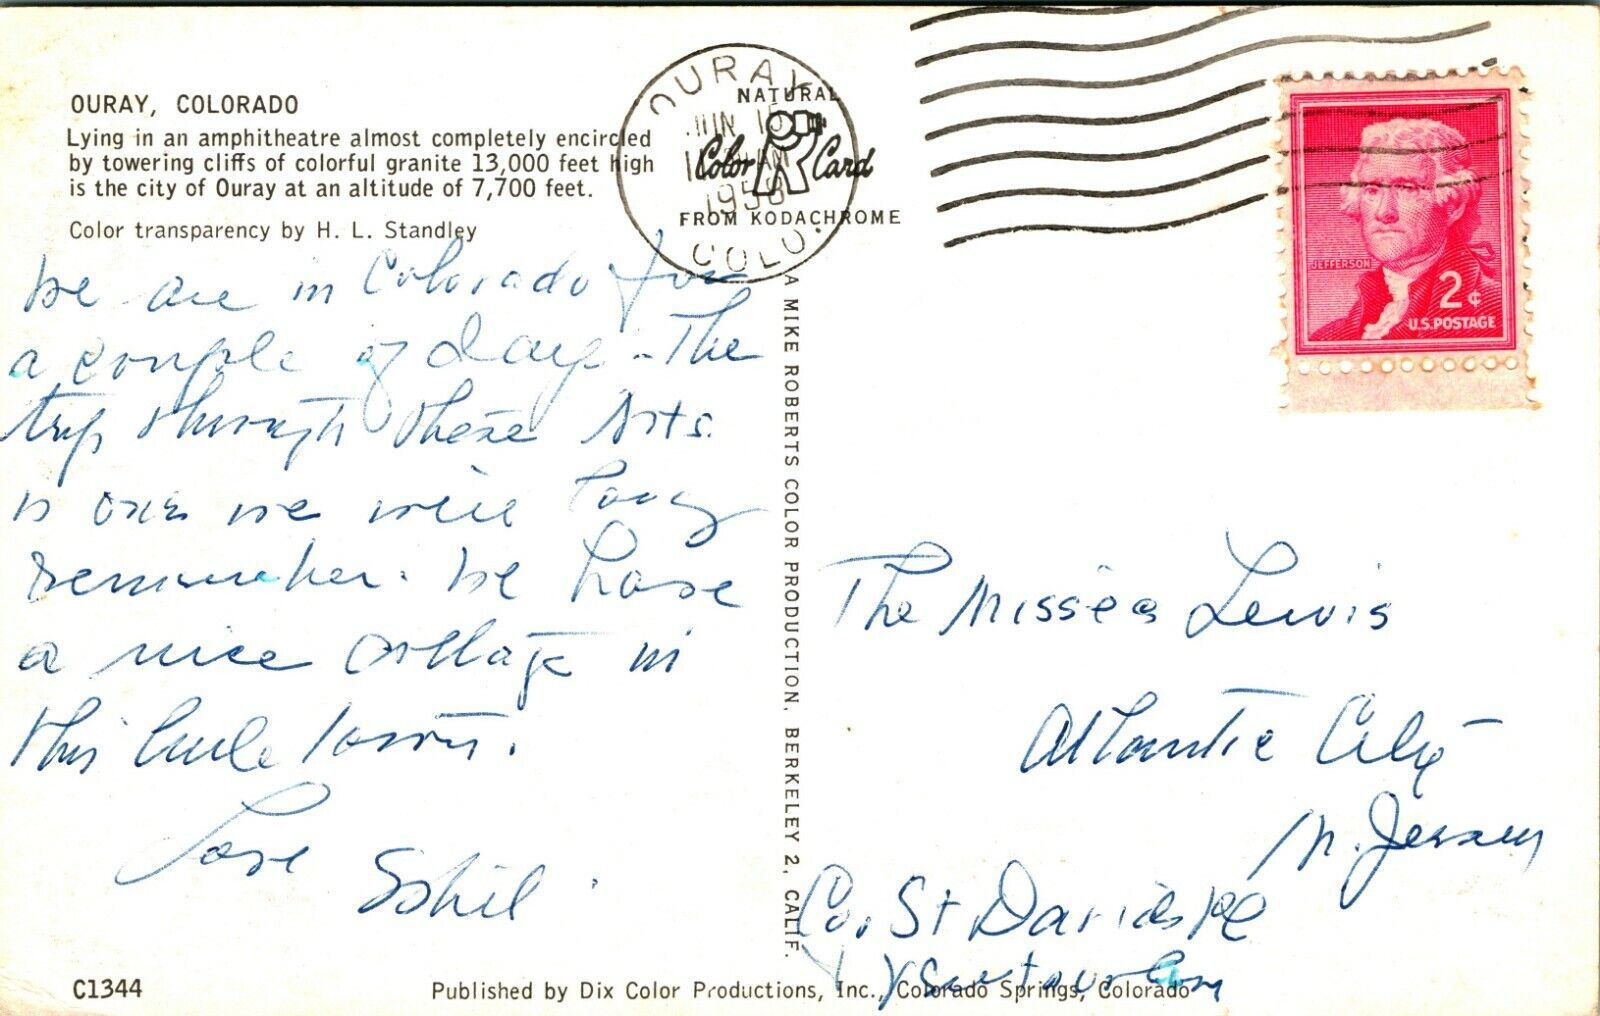 OURAY, COLORADO
Lying in an amphitheatre almost completely encircled
by towering cliffs of colorful granite 13,000 feet high
is the city of Ouray at an altitude of 7,700 feet.
Color transparency by H. L. Standley
We are in Colorado for
a couple of days. The
trip through these
is one we will long
remember. We have
a nice cottage in
this little town.
Love
OURAY
JUN 15
1958
COLO.
NATURAL
Color Card
FROM KODACHROME
A MIKE ROBERTS COLOR PRODUCTION, BERKELEY 2, CALIF.
JEFFERSON
2¢
U.S. POSTAGE
The Misses Lewis
Atlantic City
N. Jersey
Co. St Davids Pl
C1344
Published by Dix Color Productions, Inc., Colorado Springs, Colorado